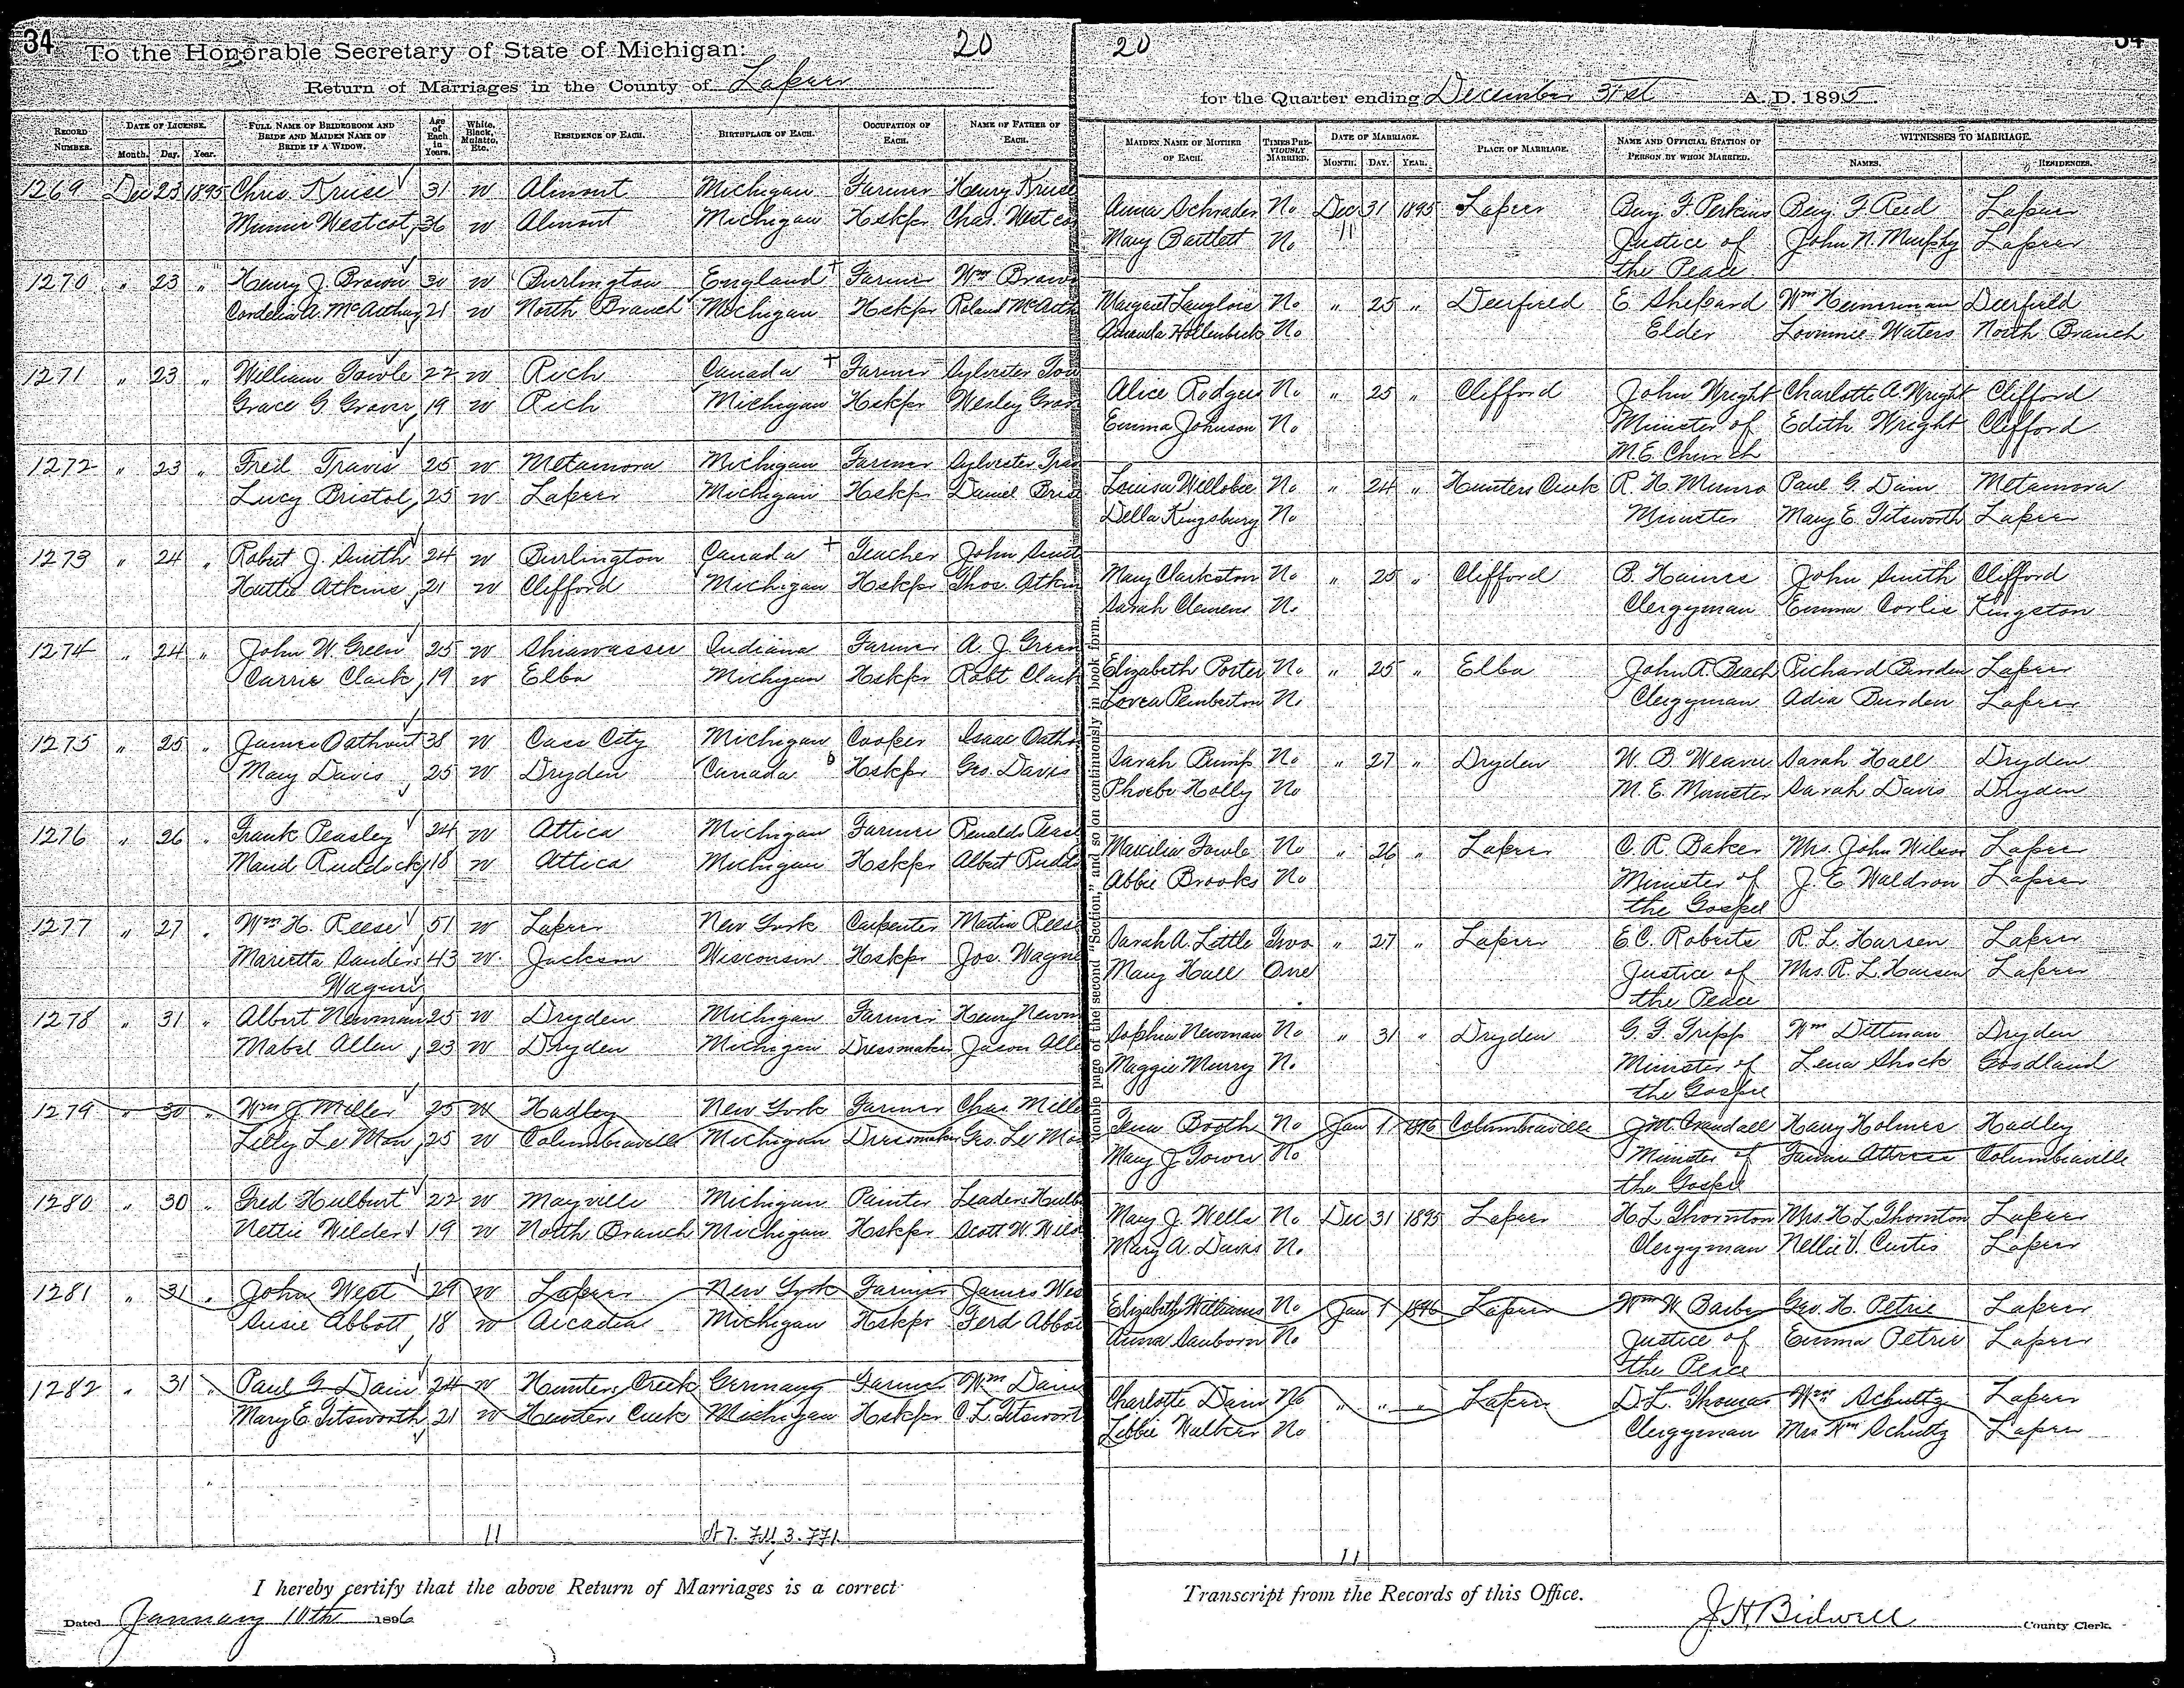 34 To the Honorable Secretary of State of Michigan: 20 20 34
Return of Marriages in the County of Lapeer for the Quarter ending December 31st A. D. 1895
RECORD NUMBER. DATE OF LICENSE. Month. Day. Year. FULL NAME OF BRIDEGROOM AND BRIDE AND MAIDEN NAME OF BRIDE IF A WIDOW. Age of Each in Years. White, Black, Mulatto, Etc. RESIDENCE OF EACH. BIRTHPLACE OF EACH. OCCUPATION OF EACH. NAME OF FATHER OF EACH. MAIDEN NAME OF MOTHER OF EACH. TIMES PREVIOUSLY MARRIED. DATE OF MARRIAGE. MONTH. DAY. YEAR. PLACE OF MARRIAGE. NAME AND OFFICIAL STATION OF PERSON BY WHOM MARRIED. WITNESSES TO MARRIAGE. NAMES. RESIDENCES.
1269 Dec 23 1895 Chris Kruse 31 w Almont Michigan Farmer Henry Kruse Anna Schrader No Dec 31 1895 Lapeer Benj. F. Perkins Benj. F. Reed Lapeer
Minnie Westcot 36 w Almont Michigan Hskpr Chas. Westco Mary Bartlett No 11 Justice of John N. Murphy Lapeer
the Peace
1270 " 23 " Henry J. Brown 30 w Burlington England Farmer Wm Brown Margaret Langlois No " 25 " Deerfield E Shepard Wm Hemmerman Deerfield
Cordelia A. McArthur 21 w North Branch Michigan Hskpr Roland McArth Amanda Hollenbeck No Elder Lovinnie Waters North Branch
1271 " 23 " William Fowle 22 w Rich Canada Farmer Sylvester Fow Alice Rodgers No " 25 " Clifford John Wright Charlotte A. Wright Clifford
Grace G. Graver 19 w Rich Michigan Hskpr Wesley Grav Emma Johnson No Minister of Edith Wright Clifford
M.E. Church
1272 " 23 " Fred Travis 25 w Metamora Michigan Farmer Sylvester Trav Louisa Willobee No " 24 " Hunters Creek R. H. Munro Paul G. Dain Metamora
Lucy Bristol 25 w Lapeer Michigan Hskpr Daniel Bris Della Kingsbury No Minister Mary E. Titsworth Lapeer
1273 " 24 " Robert J. Smith 24 w Burlington Canada Teacher John Smit Mary Clarkston No " 25 " Clifford B. Haines John Smith Clifford
Hattie Atkins 21 w Clifford Michigan Hskpr Thos. Atkin Sarah Clemens No Clergyman Emma Corlis Kingston
1274 " 24 " John W. Green 25 w Shiawassee Indiana Farmer A. J. Green Elizabeth Poster No " 25 " Elba John A. Beach Richard Burden Lapeer
Carrie Clark 19 w Elba Michigan Hskpr Robt Clark Lovea Pemberton No Clergyman Adia Burden Lapeer
1275 " 25 " James Oathout 38 w Cass City Michigan Cooper Isaac Oatho Sarah Bump No " 27 " Dryden W. B. Weaver Sarah Hall Dryden
Mary Davis 25 w Dryden Canada Hskpr Geo. Davis Phoebe Holly No M. E. Minister Sarah Davis Dryden
1276 " 26 " Frank Peasley 24 w Attica Michigan Farmer Renaldo Peasl Marcilia Fowle No " 26 " Lapeer C. R. Baker Mrs. John Wilson Lapeer
Maud Ruddock 18 w Attica Michigan Hskpr Albert Rudd Abbie Brooks No Minister of J. E. Waldron Lapeer
the Gospel
1277 " 27 " Wm H. Reese 51 w Lapeer New York Carpenter Martin Reese Sarah A. Little Two " 27 " Lapeer E. C. Roberts R. L. Harsen Lapeer
Marietta Sanders 43 w Jackson Wisconsin Hskpr Jos. Wagne Mary Hall One Justice of Mrs. R. L. Harsen Lapeer
Wagner the Peace
1278 " 31 " Albert Newman 25 w Dryden Michigan Farmer Henry Newm Sophia Newman No " 31 " Dryden G. F. Tripp Wm Dittman Dryden
Mabel Allen 23 w Dryden Michigan Dressmaker Jason Alle Maggie Murry No Minister of Lena Shock Goodland
the Gospel
1279 " 30 " Wm J Miller 25 w Hadley New York Farmer Chas. Mille Tena Booth No Jan 1 1896 Columbiaville J.M. Crandall Harry Holmes Hadley
Lilly Le Mon 25 w Columbiaville Michigan Dressmaker Geo. Le Mo Mary J. Tower No Minister of Fannie Attress Columbiaville
the Gospel
1280 " 30 " Fred Hulburt 22 w Mayville Michigan Painter Leander Hulb Mary J. Wells No Dec 31 1895 Lapeer H. L. Thornton Mrs. H. L. Thornton Lapeer
Nettie Wilder 19 w North Branch Michigan Hskpr Scott W. Wild Mary A. Davis No Clergyman Nellie V. Curtis Lapeer
1281 " 31 " John West 29 w Lapeer New York Farmer James Wes Elizabeth Williams No Jan 1 1896 Lapeer Wm W Barber Geo. H. Petrie Lapeer
Susie Abbott 18 w Arcadia Michigan Hskpr Ferd Abbot Anna Sanborn No Justice of Emma Petrie Lapeer
the Peace
1282 " 31 " Paul G Dain 24 w Hunters Creek Germany Farmer Wm Dain Charlotte Dain No " " " Lapeer D. L. Thomas Wm Schultz Lapeer
Mary E. Titsworth 21 w Hunters Creek Michigan Hskpr C. L. Titswort Libbie Walker No Clergyman Mrs Wm Schultz Lapeer
11 11
double page of the second "Section," and so on continuously in book form.
I hereby certify that the above Return of Marriages is a correct Transcript from the Records of this Office.
Dated January 10th 1896 J. H. Bidwell County Clerk.